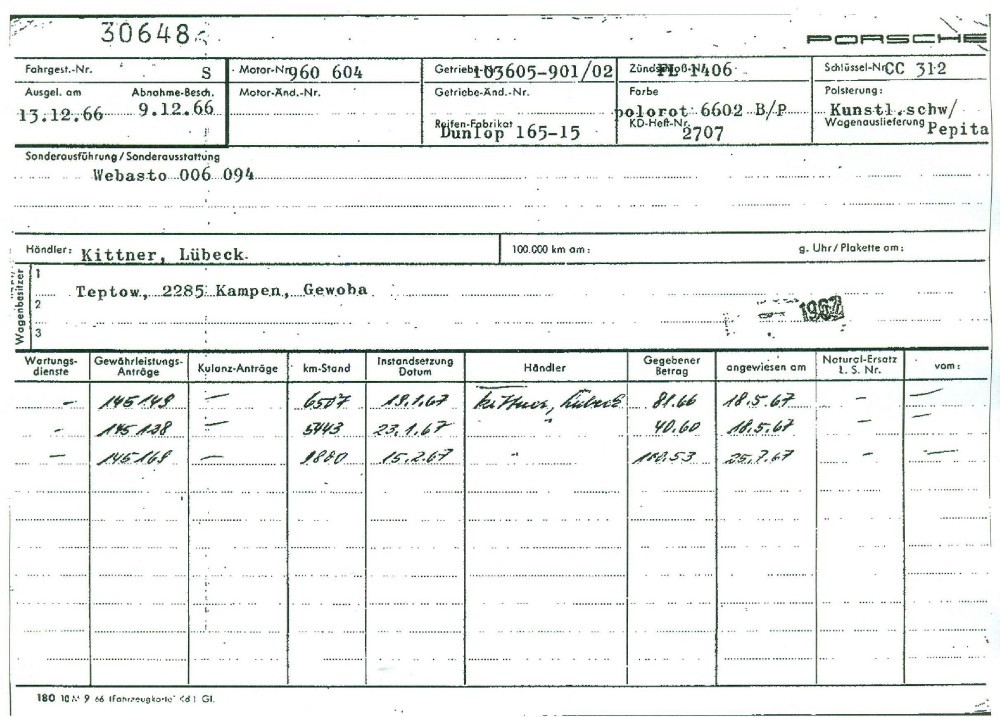 30648
PORSCHE
Fahrgest.-Nr. S
Motor-Nr. 960 604
Getriebe-Nr. 103605-901/02
Zündschloß-Nr. FL 1406
Schlüssel-Nr. CC 312
Ausgel. am 13.12.66
Abnahme-Besch. 9.12.66
Motor-Änd.-Nr.
Getriebe-Änd.-Nr.
Farbe polorot 6602 B/P
Polsterung: Kunstl.schw/
Reifen-Fabrikat Dunlop 165-15
KD-Heft-Nr. 2707
Wagenauslieferung Pepita
Sonderausführung/Sonderausstattung
Webasto 006 094
Händler: Kittner, Lübeck.
100.000 km am:
g. Uhr/Plakette am:
Wagenbesitzer
1
Teptow, 2285 Kampen, Gewoba
2
1967
3
Wartungs-dienste Gewährleistungs-Anträge Kulanz-Anträge km-Stand Instandsetzung Datum Händler Gegebener Betrag angewiesen am Natural-Ersatz L. S. Nr. vom:
– 145149 – 6507 19.1.67 Kittner, Lübeck 81.66 18.5.67 – –
– 145138 – 5443 23.1.67 " 40.60 18.5.67 – –
– 145168 – 9880 15.2.67 " 25.7.67 – –
180 10 M 9 66 (Fahrzeugkarte Kd) Gl.